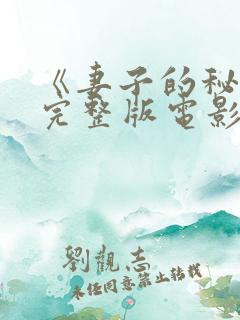 《妻子的秘
完整版电影
劉觀志
未经同意禁止转载